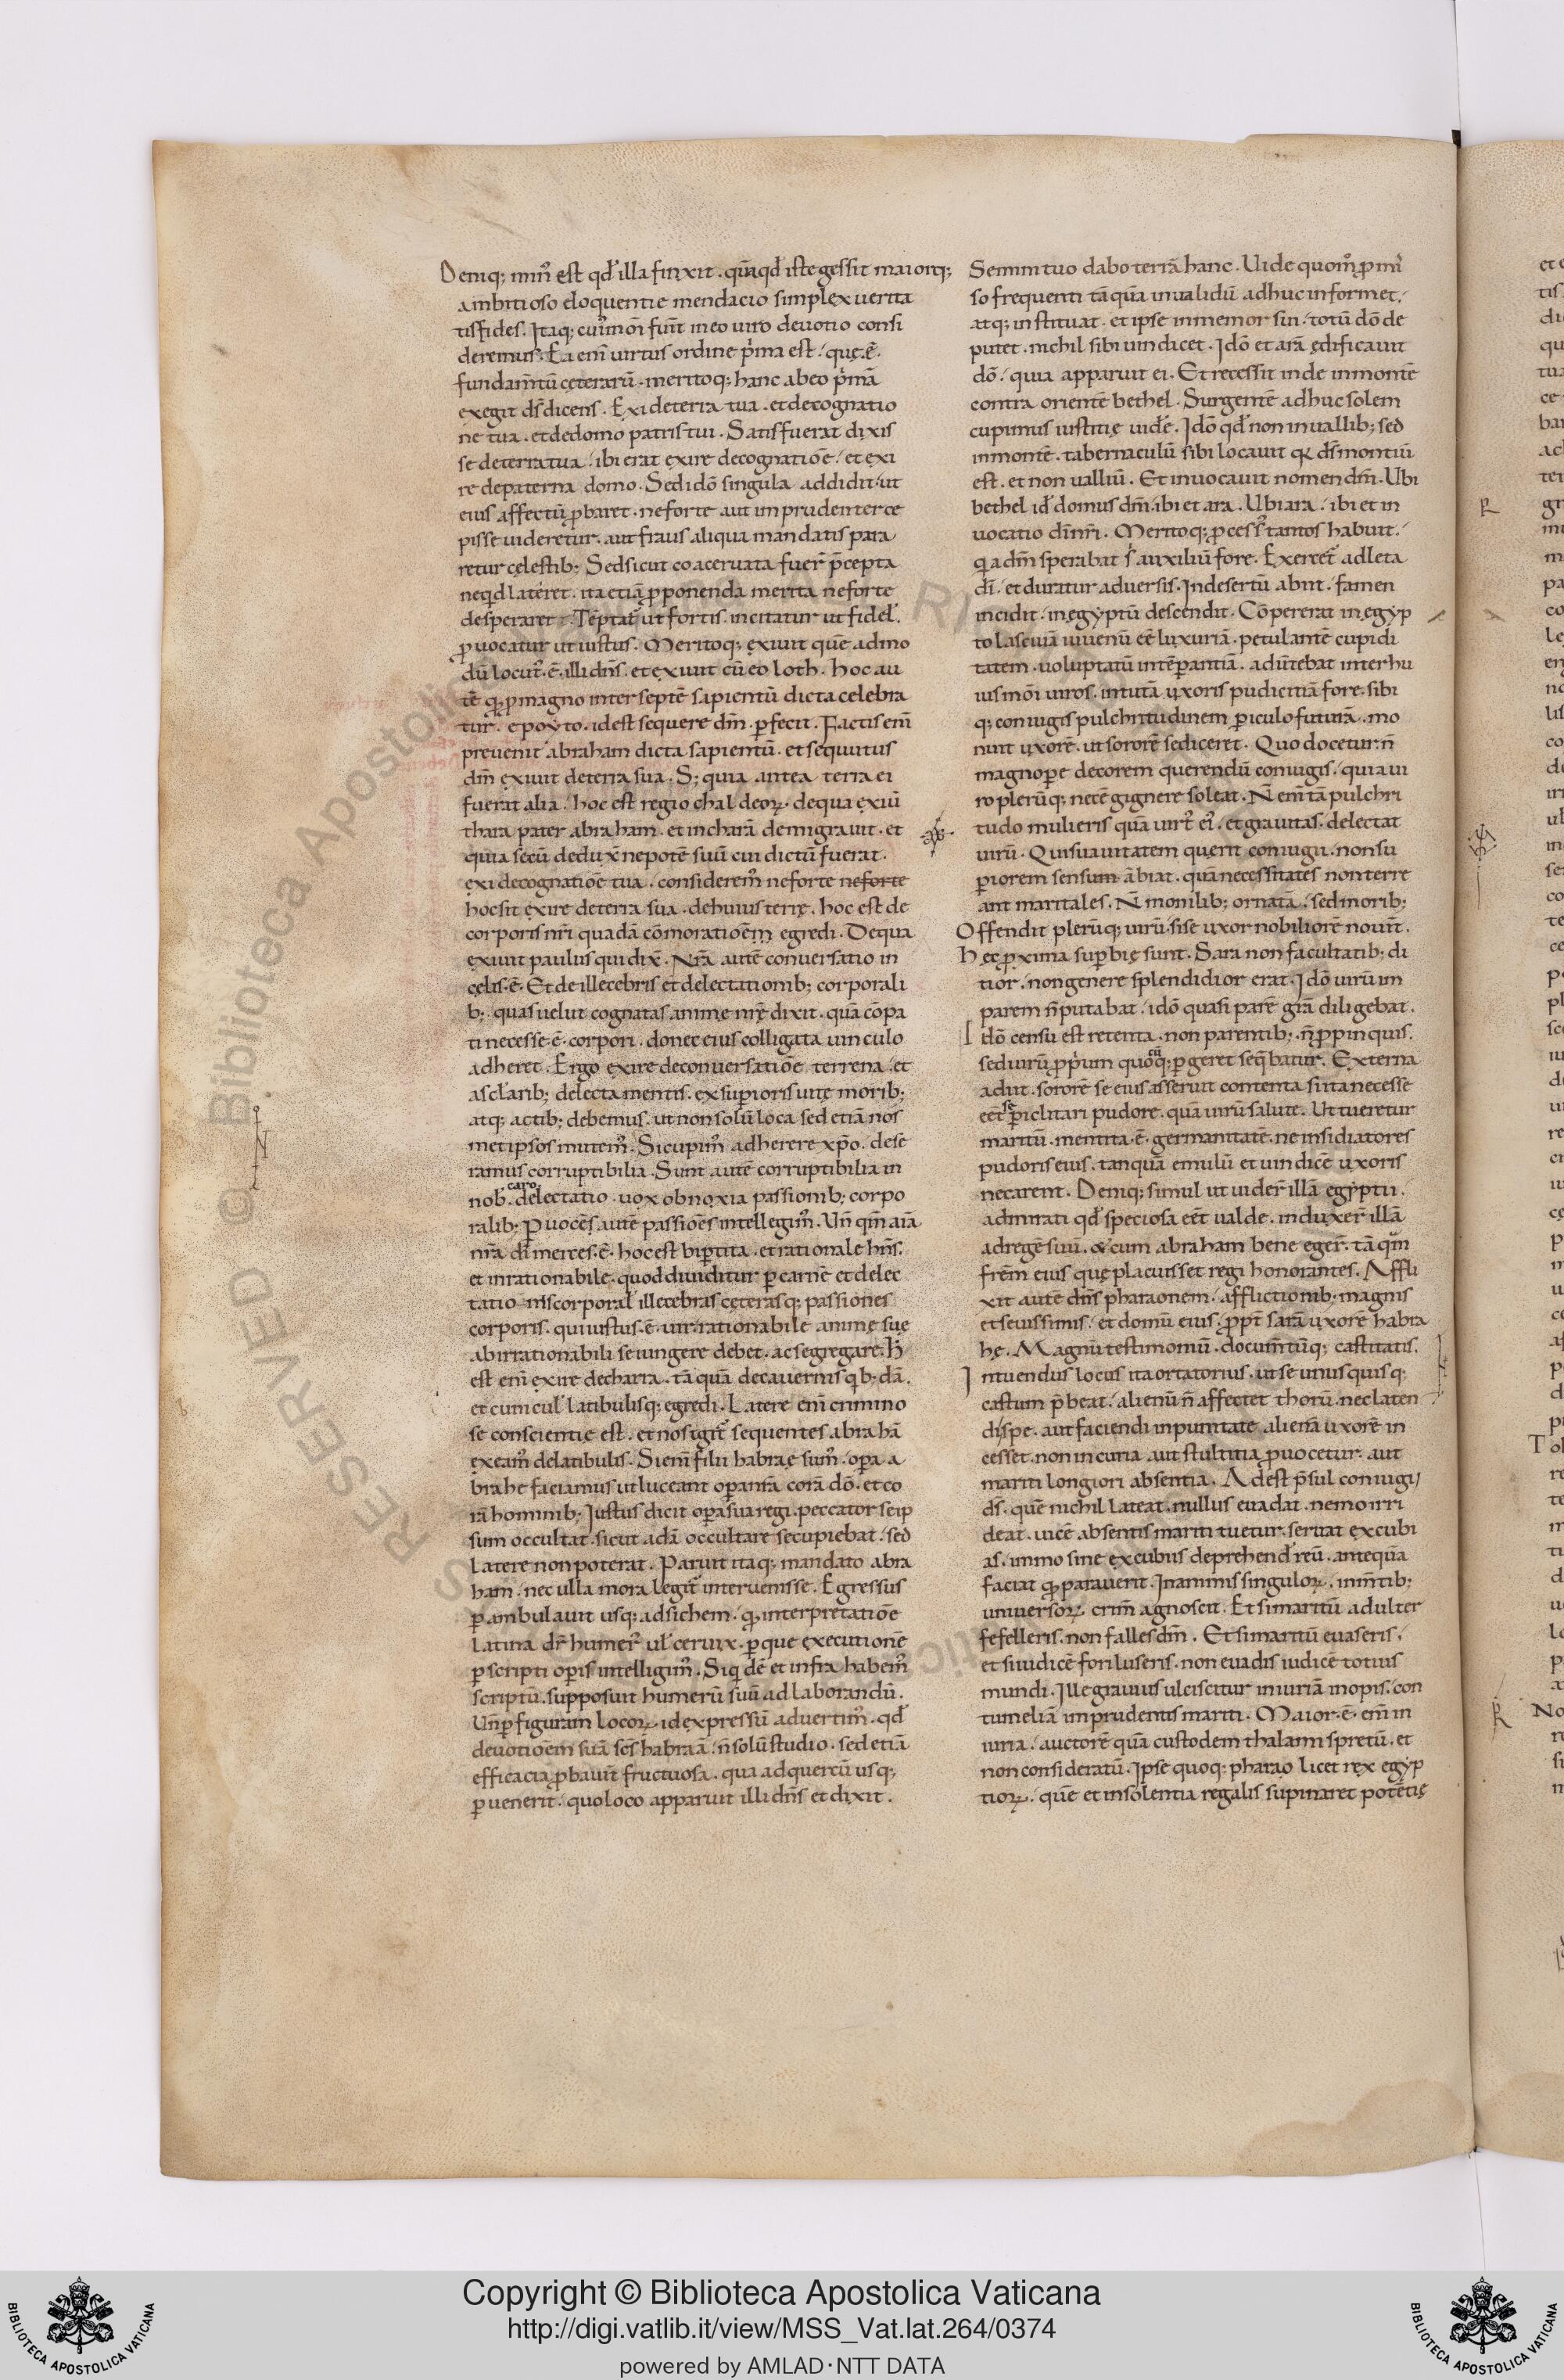 Deniq; min᷒ est qd' illa finxit . quāqd' iste gessit maiorq;
ambitioso eloquentie mendacio simplex uerita
tis fides . Itaq; cui᷒moi fuit in eo uiro deuotio consi
deremus . Ea eni uirtus ordine p̍ma est . quę . ē .
fundam̄tū cęterarū . meritoq; hanc ab eo p̍mā
exegit ds̄ dicens . Exi de terra tua . et de cognatio
ne tua . et de domo patris tui . Satis fuerat dixis
se de terra tua . ibi erat exire de cognatiōe . et exi
re de paterna domo . Sed idō singula addidit . ut
eius affectū ꝓbaret . ne forte aut imprudenter ce
pisse uideretur . aut fraus aliqua mandatis para
retur cęlestib; Sed sicut coaceruata fuer̄ p̄cepta
neqd lateret . ita etiā ꝓponenda merita ne forte
desperaret . Tēptat᷒ ut fortis . incitatur ut fidel' .
ꝓuocatur ut iustus . Meritoq; exiuit quē admo
dū locut᷒ . ē . illi dn̄s . et exiuit cū eo loth . Hoc au
tē qꝫ ꝓ magno inter septē sapientū dicta celebra
tur . epoyto . id est sequere dm̄ . perfecit . Factis eni
preuenit abraham dicta sapientū . et sequutus
dm̄ exiuit de terra sua . S; quia antea terra ei
fuerat alia . hoc est regio chaldeoꝝ . de qua exiu̅
thara pater abraham . et in charā demigrauit . et
quia secū dedux̄ nepotē suū cui dictū fuerat .
exi de cognatiōe tua . considerem᷒ ne forte neforte
hoc sit exire de terra sua . de huius terrę . hoc est de
corporis nr̄i quadā cōmoratiōem egredi . De qua
exiuit paulus qui dix̄ . Nr̄a autē conuersatio in
cęlis . ē . Et de illecebris et delectationib; corporali
b; quas uelut cognatas animę nr̄ę dixit . quā cōpa
ti necesse . ē . corpori . donec eius colligata uinculo
adheret . Ergo exire de conuersatiōe terrena . et
a sclarib; delectamentis . ex superioris uitę morib;
atq; actib; debemus . ut non solū loca sed etiā nos
met ipsos mutem᷒ . Si cupim᷒ adherere xp̄o . dese
ramus corruptibilia . Sunt autē corruptibilia in
caro
nob̄ . delectatio . uox obnoxia passionib; corpo
ralib; Per uocēs autē passiōes intellegim᷒ . Un̄ qm̄ aīa
nr̄a di merces . ē . hoc est bipertita . et rationale hn̄s .
et inrationabile . quod diuiditur per carnē et delec
tatio nis corporal' illecebras cęterasq; passiones
corporis . qui iustus . ē . uir . rationabile animę suę
ab irrationabili seiungere debet . ac segregare . H̄
est eni exire de charra . tā quā de cauernis qb;dā .
et cunicul' latibulisq; egredi . Latere eni crimino
se conscientię est . et nos igit᷒ sequentes abrahā
exeam᷒ de latibulis . Si eni filii habraę sum᷒ . opera a
brahe faciamus ut luceant opera nr̄a corā dō . et co
rā hominib; Iustus dicit opera sua regi . peccator seip
sum occultat . sicut adā occultare se cupiebat . sed
latere non poterat . Paruit itaq; mandato abra
ham . nec ulla mora legit᷒ interuenisse . Egressus
perambulauit usq; ad sichem . qꝫ interpretatiōe
latina dr̄ humer᷒ ul' ceruix . per que executionē
perscripti operis intelligim᷒ . Siqdē et infra habem᷒
scriptū . supposuit humerū suū ad laborandū .
Un̄ per figuram locoꝝ . id expressū aduertim᷒ . qd'
deuotiōem suā scs̄ habraā . n̄ solū studio . sed etiā
efficacia ꝓbauit fructuosa . qua ad quercū usq;
peruenerit . quo loco apparuit illi dn̄s et dixit .
Semini tuo dabo terrā hanc . Uide quom᷒ ꝓmi
so frequenti tā quā inualidū adhuc informet .
atq; instituat . et ipse inmemor sin . totū dō de
putet . nichil sibi uindicet . Idō et arā ędificauit
dō . quia apparuit ei . Et recessit inde in montē
contra orientē bethel . Surgentē adhuc solem
cupimus iustitię uidē . Idō qd' non in uallib; sed
in montē . tabernaculū sibi locauit qꝛ ds̄ montiū
est . et non ualliū . Et inuocauit nomen dm̄ . Ubi
bethel id' domus dm̄ . ibi et ara . Ubi ara . ibi et in
uocatio di nr̄i . Meritoq; ꝓcess᷒ tantos habuit .
q a dm̄ sperabat s̍ auxiliū fore . Exercet᷒ adleta
di . et duratur aduersis . In desertū abiit . famen
incidit . in ęgyptū descendit . Cōpererat in egyp
to lasciuiā iuuenū eē luxuriā . petulantē cupidi
tatem . uoluptatū intēperantiā . aduertebat inter hu
ius mōi uiros . intutā uxoris pudicitiā fore . sibi
q; coniugis pulchritudinem periculo futurā . mo
nuit uxorē . ut sororē se diceret . Quo docetur . n̄
magnopere decorem querendū coniugis . quia ui
ro plerūq; necē gignere soleat . N̄ eni tā pulchri
tudo mulieris quā uirt᷒ ei᷒ . et grauitas delectat
uirū . Qui suauitatem querit coniugii . non su
periorem sensum ābiat . quā necessitates non terre
ant maritales . N̄ monilib; ornatā . sed morib;
Offendit plerūq; uirū . si se uxor nobiliorē nouit .
Hęc ꝓxima superbię sunt . Sara non facultatib; di
tior . non genere splendidior erat . Idō uirū im
parem n̄ putabat . idō quasi parē gr̄a diligebat .
Idō censu est retenta . non parentib; n̄ ꝓpinquis .
sed uirū ꝓp̍um quoquā; pergeret seq̄batur . Externa
adiit . sororē se eius asseruit contenta si ita necesse
eēt se periclitari pudore . quā uirū salute . Ut tueretur
maritū . mentita . ē . germanitatē . ne insidiatores
pudoris eius . tanquā emulū et uindicē uxoris
necarent . Deniq; simul ut uider̄ illā egyptii .
admirati qd' speciosa eēt ualde . induxer̄ illā
ad regē suū . & cum abraham bene eger̄ . tā qm̄
frēm eius quę placuisset regi honorantes . Affli
xit autē dn̄s pharaonem . afflictionib; magnis
et seuissimis . et domū eius . ꝓpt᷒ sarā uxorē habra
hę . Magnū testimoniū . documtūq; castitatis .
Intuendus locus ita ortatorius . ut se unusquisq;
castum p̄beat . alienū n̄ affectet thorū . nec laten
di spe . aut faciendi inpunitate alienā uxorē in
cesset . non incuria aut stultitia ꝓuocetur . aut
mariti longiori absentia . Adest p̄sul coniugii
ds̄ . quē nichil lateat . nullus euadat . nemo irri
deat . uicē absentis mariti tuetur . seruat excubi
as . immo sine excubiis deprehend' reū . antequā
faciat qꝫ parauerit . In animis singuloꝝ . in mtib;
uniuersoꝝ crim̄ agnoscit . Et si maritū adulter
fefelleris . non falles dm̄ . Et si maritū euaseris .
et si iudicē fori luseris . non euadis iudicē totius
mundi . Ille grauius ulciscitur iniuriā inopis . con
tumeliā imprudentis mariti . Maior . ē . eni in
iuria . auctorē quā custodem thalami spretū . et
non consideratū . Ipse quoq; pharao licet rex egyp
tioꝝ . quē et insolentia regalis supinaret potētię
Copyright © Biblioteca Apostolica Vaticana
http://digi.vatlib.it/view/MSS_Vat.lat.264/0374
powered by AMLAD·NTT DATA
BIBLIOTECA APOSTOLICA VATICANA
BIBLIOTECA APOSTOLICA VATICANA